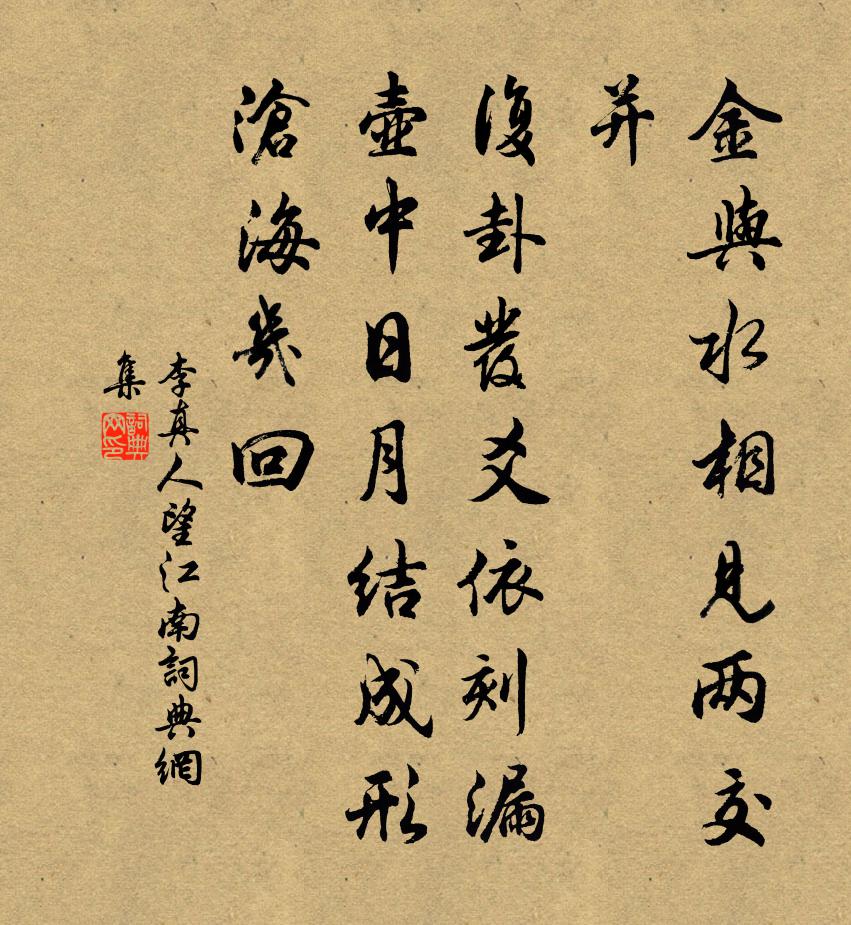 金與水相見两交
并
復卦發爻依刻漏
壺中日月结成形
滄海幾回
李真人望江南詞典網
集
詞典網印